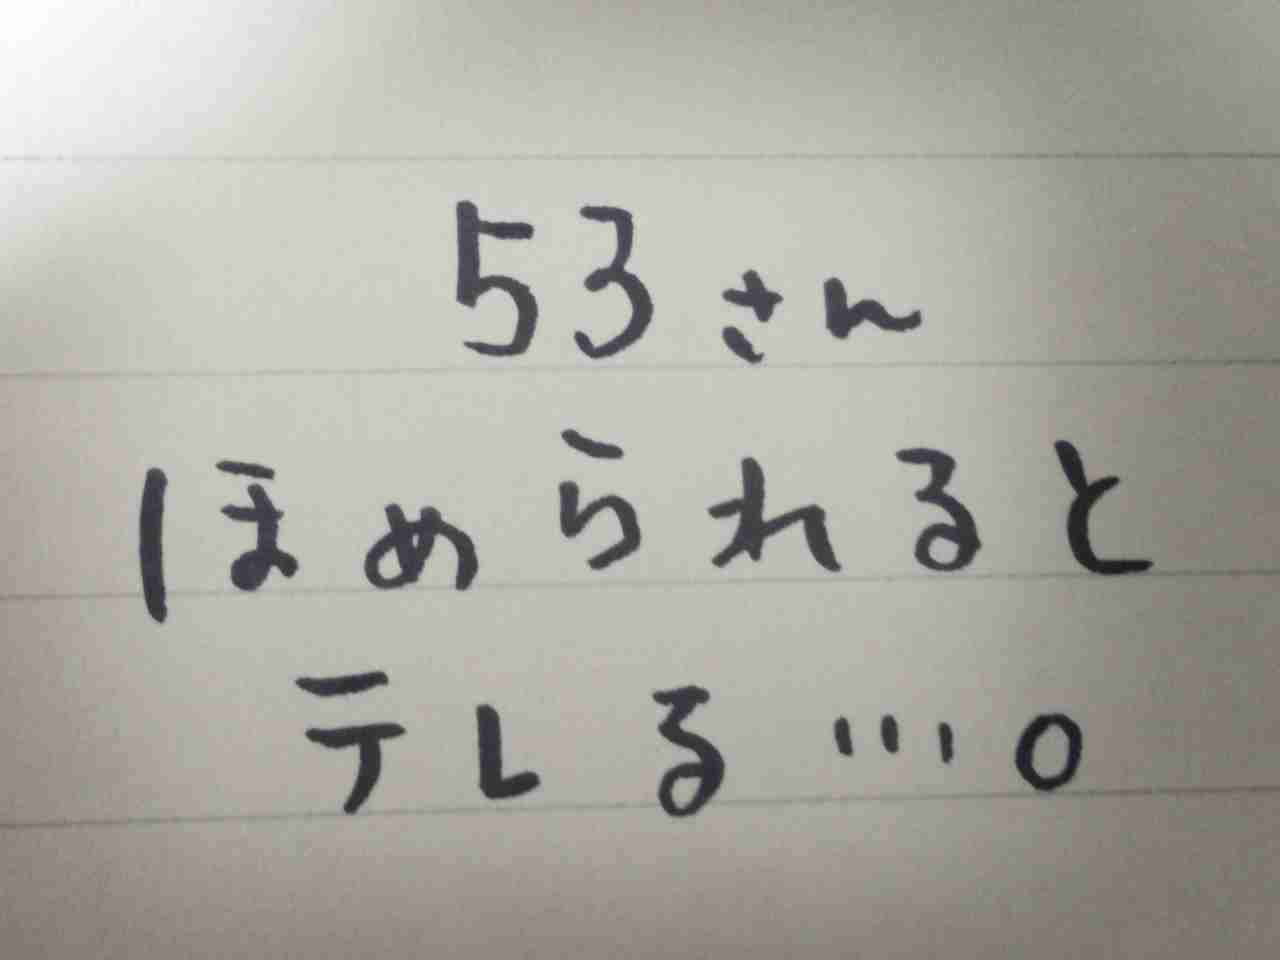 53さん
ほめられると
テレる…。